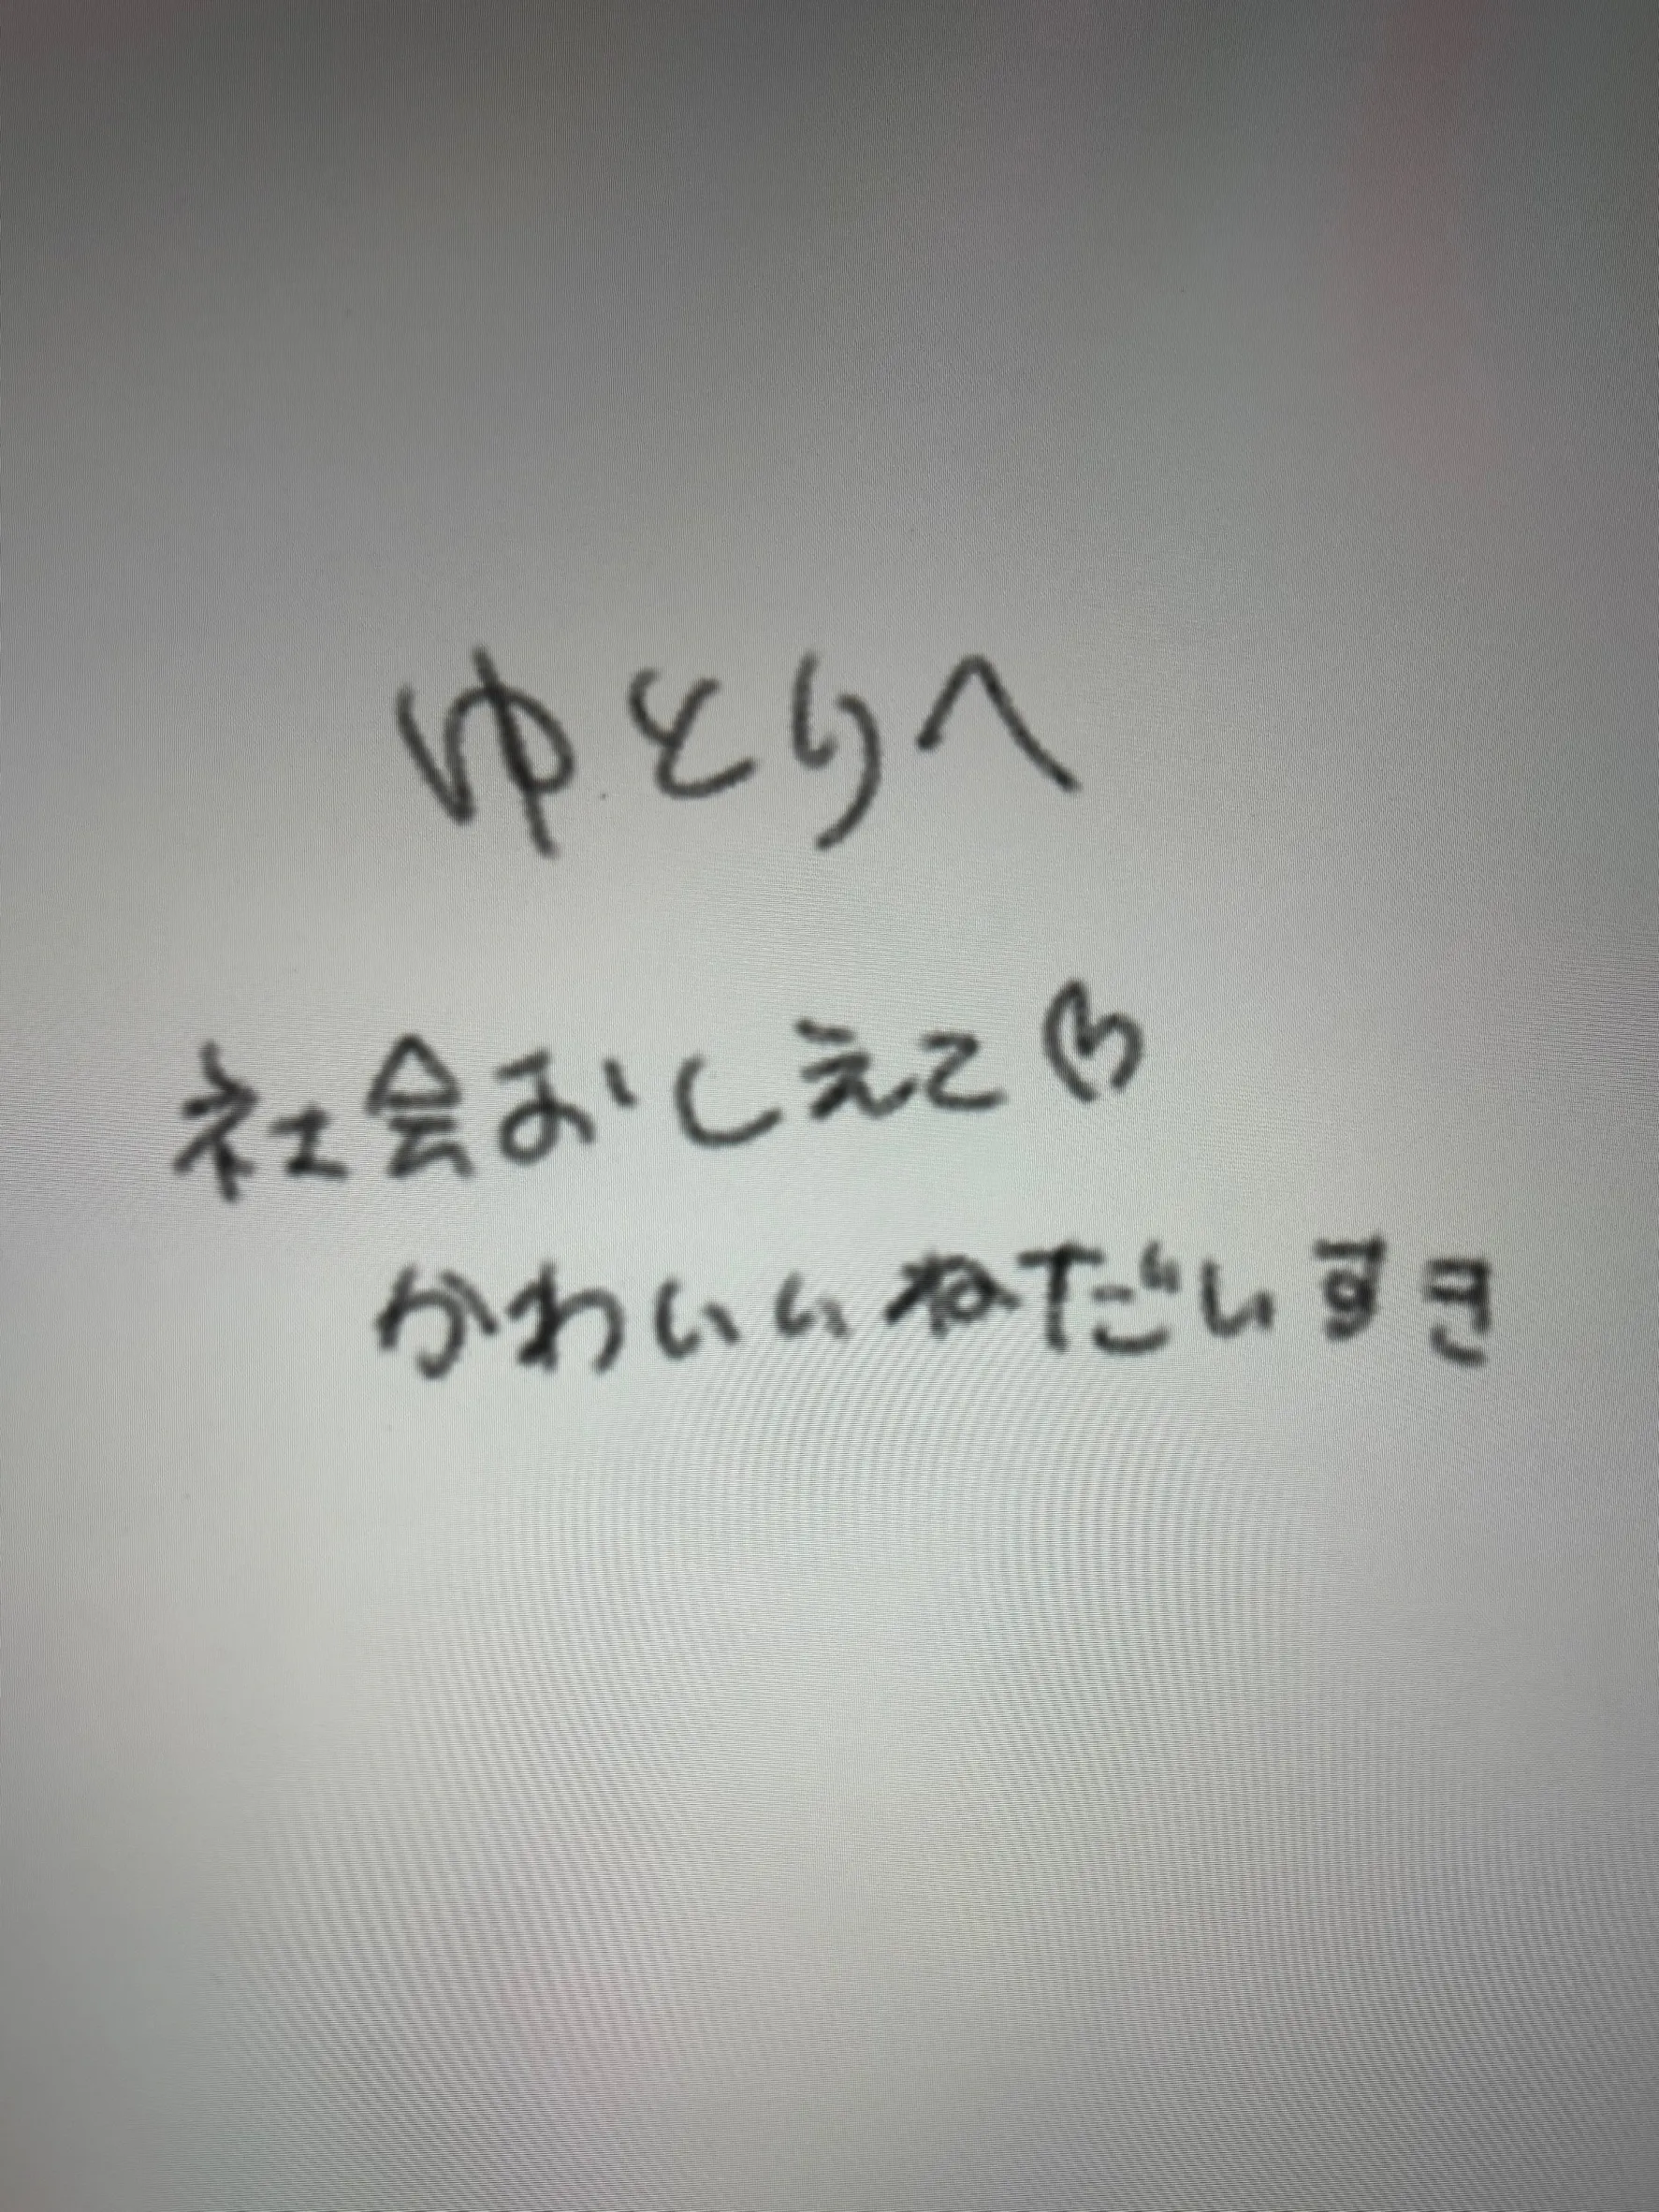 ゆとりへ
社会おしえて♡
かわいいねだいすき